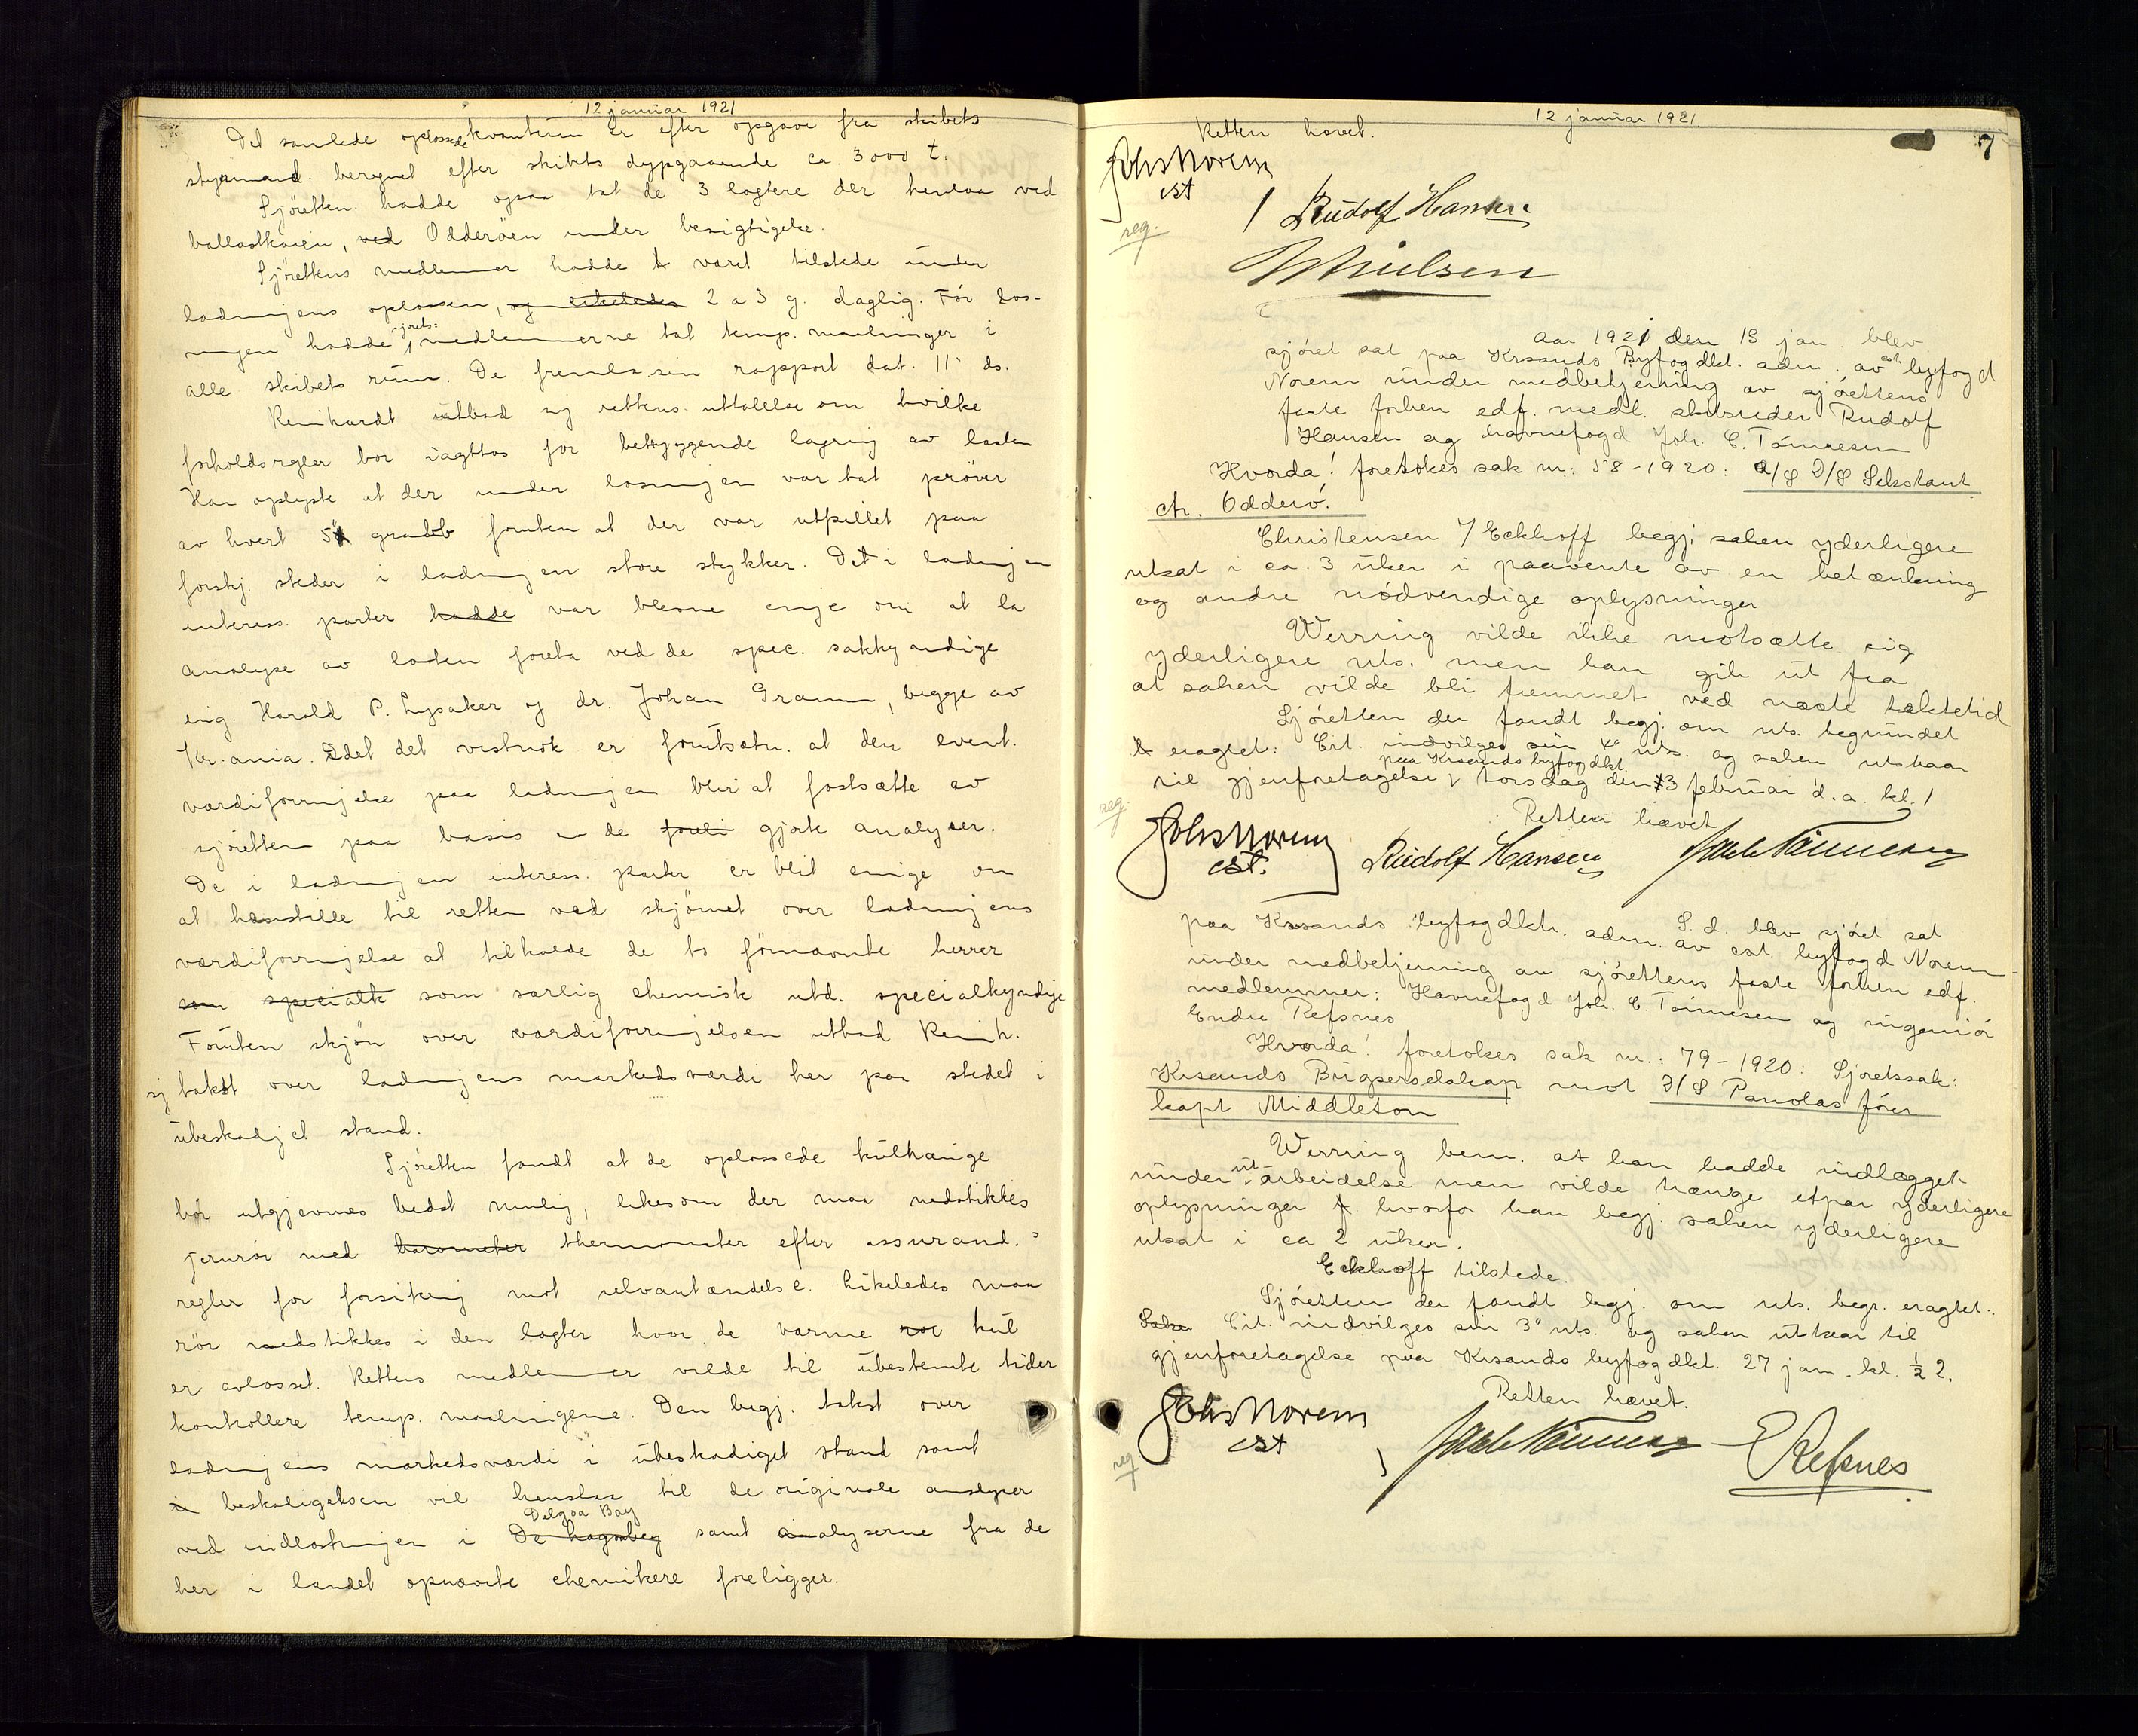 12 januar 1921
Det samlede oplossede kvantum er efter opgave fra skibets
styrmand beregnet efter skibets dypgaaende ca. 3000 t.
Sjöretten hadde ogsaa tat de 3 lagtere der henlaa ved
ballastkaien, ved Odderöen under besigtigelse.
Sjörettens medlemmer hadde været tilstede under
ladningens oplossen, og likeledes 2 a 3 g. daglig. För los-
ningen hadde sjörets: medlemmerne tat temp. maalinger i
alle skibets rum. De fremla sin rapport dat. 11' ds.
Reinhardt utbad sig rettens uttalelse om hvilke
forholdsregler bör iagttas for betryggende lagring av lasten
Han oplyste at der under losningen var tat pröver
av hvert 5 grabb foruten at der var utpillet paa
forskj. steder i ladningen store stykker. De i ladningen
interess. parter hadde var blevne enige om at la
analyse av lasten foreta ved de spec. sakkyndige
ing. Harald P. Lysaker og dr. Johan Gramm, begge av
Kr.ania. Idet det vistnok er forutsætn. at den event.
værdiforringelse paa ladningen blir at fastsætte av
sjöretten paa basis av de gjorte analyser.
De i ladningen interess. parter er blit enige om
at henstille til retten ved skjönnet over ladningens
værdiforringelse at tilkalde de to förnævnte herrer
som specialk som særlig chemisk utd. specialkyndige
Foruten skjön over værdiforringelsen utbad Reinh.
sig takst over ladningens markedsværdi her paa stedet i
übeskadiget stand.
Sjöretten fandt at de oplossede kulhauge
bör utgjevnes bedst mulig, likesom der maa nedstikkes
jernrör med barometer thermometer efter assurand.s
regler for forsikring mot selvantændelse. Likeledes maa
rör nedstikkes i den lagter hvor de varme kul
er avlosset. Rettens medlemmer vilde til übestemte tider
kontrollere temp. maalingene. Den begj. takst over
ladningens markedsværdi i übeskadiget stand samt
i beskadigelsen vil henstaa til de originale analyser
Delgoa Bay
ved indlastningen i De hagobey samt analyserne fra de
her i landet opnævnte chemikere foreligger.
12 januar 1921.
7
Retten hævet.
Johs Norem
cst
reg.
/ Rudolf Hansen
Nielsen
Aar 1921 den 13 jan. blev
sjöret sat paa Krsands Byfogdkt. adm. av cst. byfogd
Norem under medbetjening av sjörettens
faste forhen edf. medl. skibsreder Rudolf
Hansen og havnefogd Joh. C. Tönnesen
Hvorda! foretokes sak nr: 58-1920: A/S D/S Sekstant
ctr. Odderö.
Christensen f/ Eckhoff begj. saken yderligere
utsat i ca. 3 uker i paavente av en betænkning
og andre nödvendige oplysninger
Werring vilde ikke motsætte sig
yderligere uts. men han gik ut fra
at saken vilde bli fremmet ved næste tektetid
Sjöretten der fandt begj. om uts. begrundet
eragtet: Cit. indvilges sin uts. og saken utstaar
paa Krsands byfogdkt.
til gjenforetagelse torsdag den 3 februar d.a. kl. 1
Retten hævet
reg.
Johs Norem
cst.
Rudolf Hansen
Joh C Tönnesen
S.d. blev sjöret sat
paa Krsands byfogdkt. adm. av cst. byfogd Norem
under medbetjening av sjörettens faste forhen edf.
medlemmer: Havnefogd Joh. C. Tönnesen og ingeniör
Endre Refsnes
Hvorda! foretokes sak nr.: 79-1920: Sjöretssak:
Krsands Bugserselskap mot D/S Panolas förer
kapt Middleton
Werring bem. at han hadde indlægget
under utarbeidelse men vilde trænge etpar yderligere
oplysninger hvorfor han begj. saken yderligere
utsat i ca 2 uker.
Eckhoff tilstede.
Sjöretten der fandt begj. om uts. begr. eragtet:
Saken Cit. indvilges sin 3" uts. og saken utstaar til
gjenforetagelse paa Krsands byfogdkt. 27 jan. kl. ½ 2.
Retten hævet.
Johs Norem
cst
reg
Joh C Tönnesen
E Refsnes